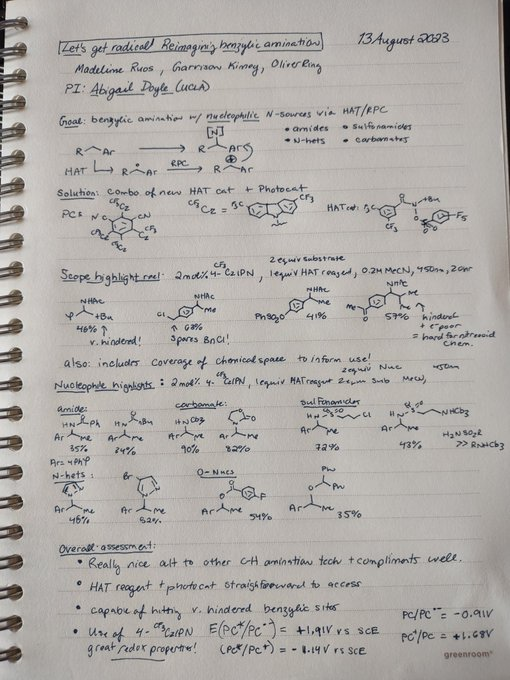 Let's get radical! Reimagining benzylic amination
13 August 2023
Madeline Ruos, Garrison Kinney, Oliver Ring
PI: Abigail Doyle (UCLA)
Goal: benzylic amination w/ nucleophilic N-sources via HAT/RPC
• amides • sulfonamides
• N-hets • carbamates
R Ar → R [N] Ar
HAT R Ar RPC R ⊕ Ar
Solution: combo of new HAT cat + Photocat
PC: NC CN CF3Cz CF3Cz CF3Cz CF3Cz
CF3Cz = F3C CF3 N
HAT cat: F3C CF3 O N tBu O
2 equiv substrate
Scope highlight reel: 2 mol% 4-CF3CzIPN, 1 equiv HAT reagent, 0.2M MeCN, 450nm,
NHAc tBu
46% ↑
v. hindered!
NHAc Me Cl
↑ 68%
spares BnCl!
NHAc Me PhSO2O
41%
NHAc Me Me
57% ↑ hindered
+ e⁻ poor
= hard for nitrenoid
chem.
also: includes coverage of chemical space to inform use!
Nucleophile highlights: 2 mol% 4-CF3CzIPN, 1 equiv HAT reagent 2 equiv sub MeCN,
2 equiv Nuc 450nm
amide:
HN O Ph Ar Me
35%
HN O tBu Ar Me
84%
Ar = 4PhΨ
carbamate:
HNCbz Ar Me
90%
O N O Ar Me
82%
sulfonamides
HN Cl Ar Me
72%
HN NHCbz Ar Me
43%
H2NSO2R
>> RNHCbz
N-hets:
N Ar Me
46%
Br N Ar Me
52%
O-Nucs
O O F Ar Me
54%
O Ar Me
35%
Overall assessment:
• Really nice alt to other C-H amination tech + compliments well.
• HAT reagent + photocat straightforward to access
• capable of hitting v. hindered benzylic sites
• Use of 4-CF3CzIPN E(PC*/PC•-) = +1.91V vs SCE
great redox properties! (PC*/PC+) = -1.14V vs SCE
PC/PC•- = -0.91V
PC+/PC = +1.68V
greenroom